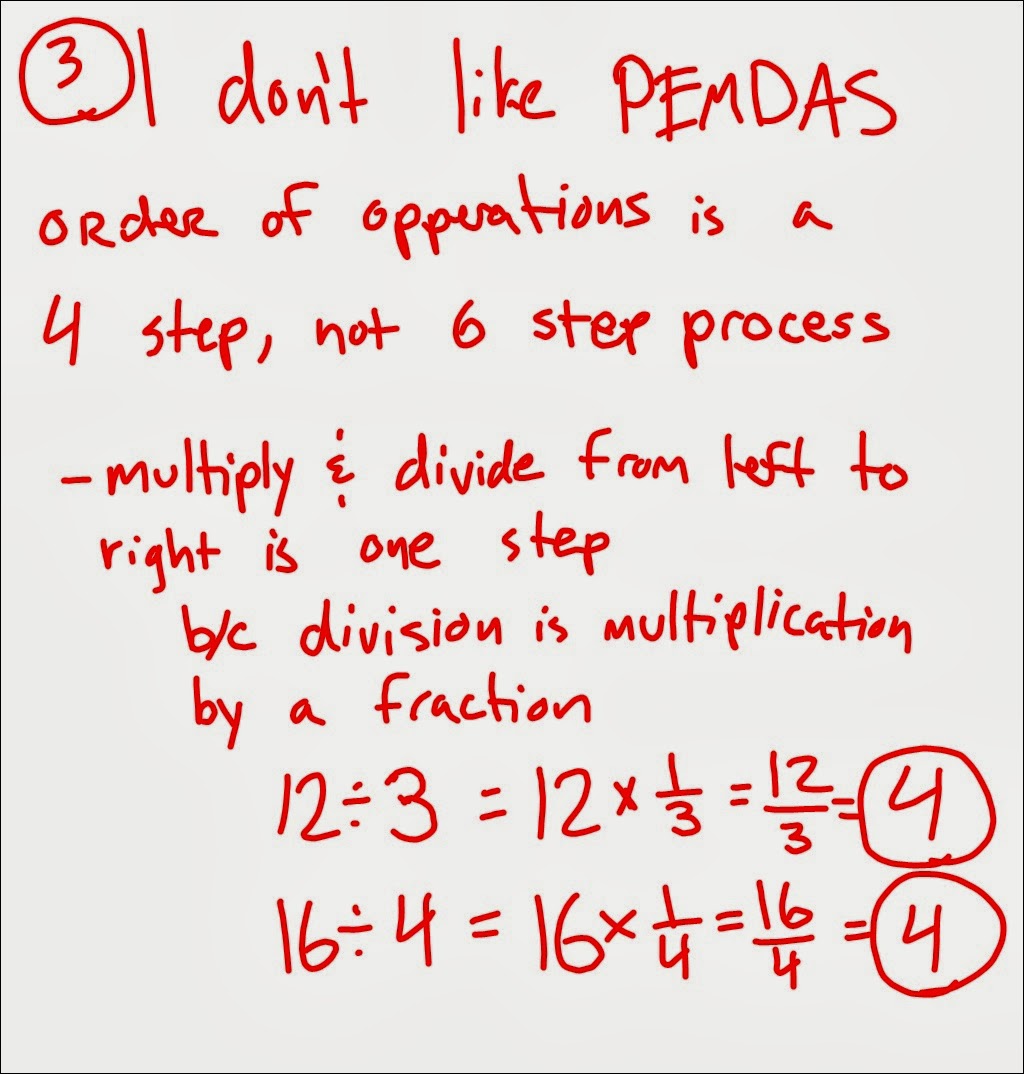 ③ I don't like PEMDAS
order of opperations is a
4 step, not 6 step process
- multiply & divide from left to
right is one step
b/c division is multiplication
by a fraction
12 ÷ 3 = 12 × 1/3 = 12/3 = 4
16 ÷ 4 = 16 × 1/4 = 16/4 = 4